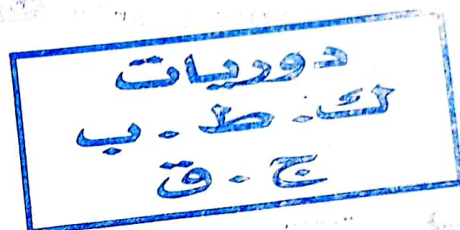 دوريات
ك. ط. ب
ج. ق